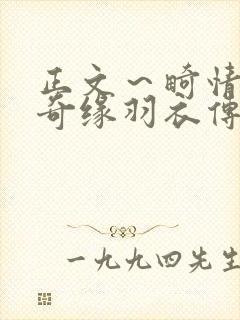 正文～畸情
奇缘羽衣传
一九九四先生